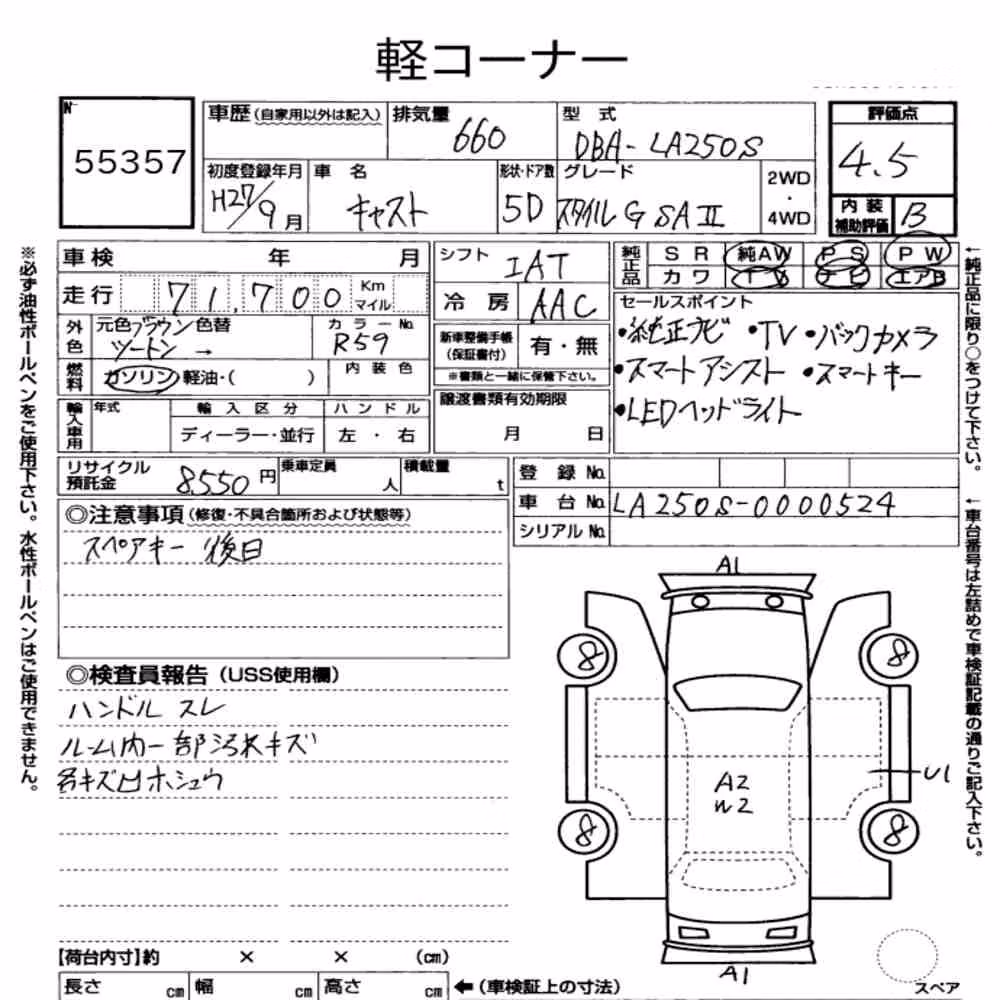 軽コーナー
No
55357
車歴(自家用以外は記入) 排気量 660 型 式 DBA-LA250S
評価点
4.5
初度登録年月 H27/9月 車 名 キャスト 形状・ドア数 5D グレード スタイル G SAⅡ 2WD・4WD
内装補助評価 B
車検 年 月
走行 71,700 Km マイル
シフト IAT
冷 房 AAC
純正品 SR 純AW PS PW
カワ TV ナビ エアB
外色 元色ブラウン 色替 カラーNo. R59
ツートン →
新車整備手帳(保証書付) 有・無
※書類と一緒に保管下さい。
セールスポイント
・純正ナビ ・TV ・バックカメラ
・スマートアシスト ・スマートキー
・LEDヘッドライト
燃料 ガソリン 軽油・( ) 内 装 色
譲渡書類有効期限
月 日
輸入車用 年式 輸 入 区 分 ハ ン ド ル
ディーラー・並行 左 ・ 右
リサイクル預託金 8550円 乗車定員 人 積載量 t
登 録 No.
車 台 No. LA250S-0000524
シリアル No.
◎注意事項(修復・不具合箇所および状態等)
スペアキー 後日
◎検査員報告(USS使用欄)
ハンドル スレ
ルーム内一部汚れキズ
キズ凹ホシュウ
A1
8 8
A2
W2
U1
8 8
A1
スペア
【荷台内寸】約 × × (cm)
長さ cm 幅 cm 高さ cm ←(車検証上の寸法)
※必ず油性ボールペンをご使用下さい。水性ボールペンはご使用できません。
←純正品に限り○をつけて下さい。
←車台番号は左詰めで車検証記載の通りご記入下さい。